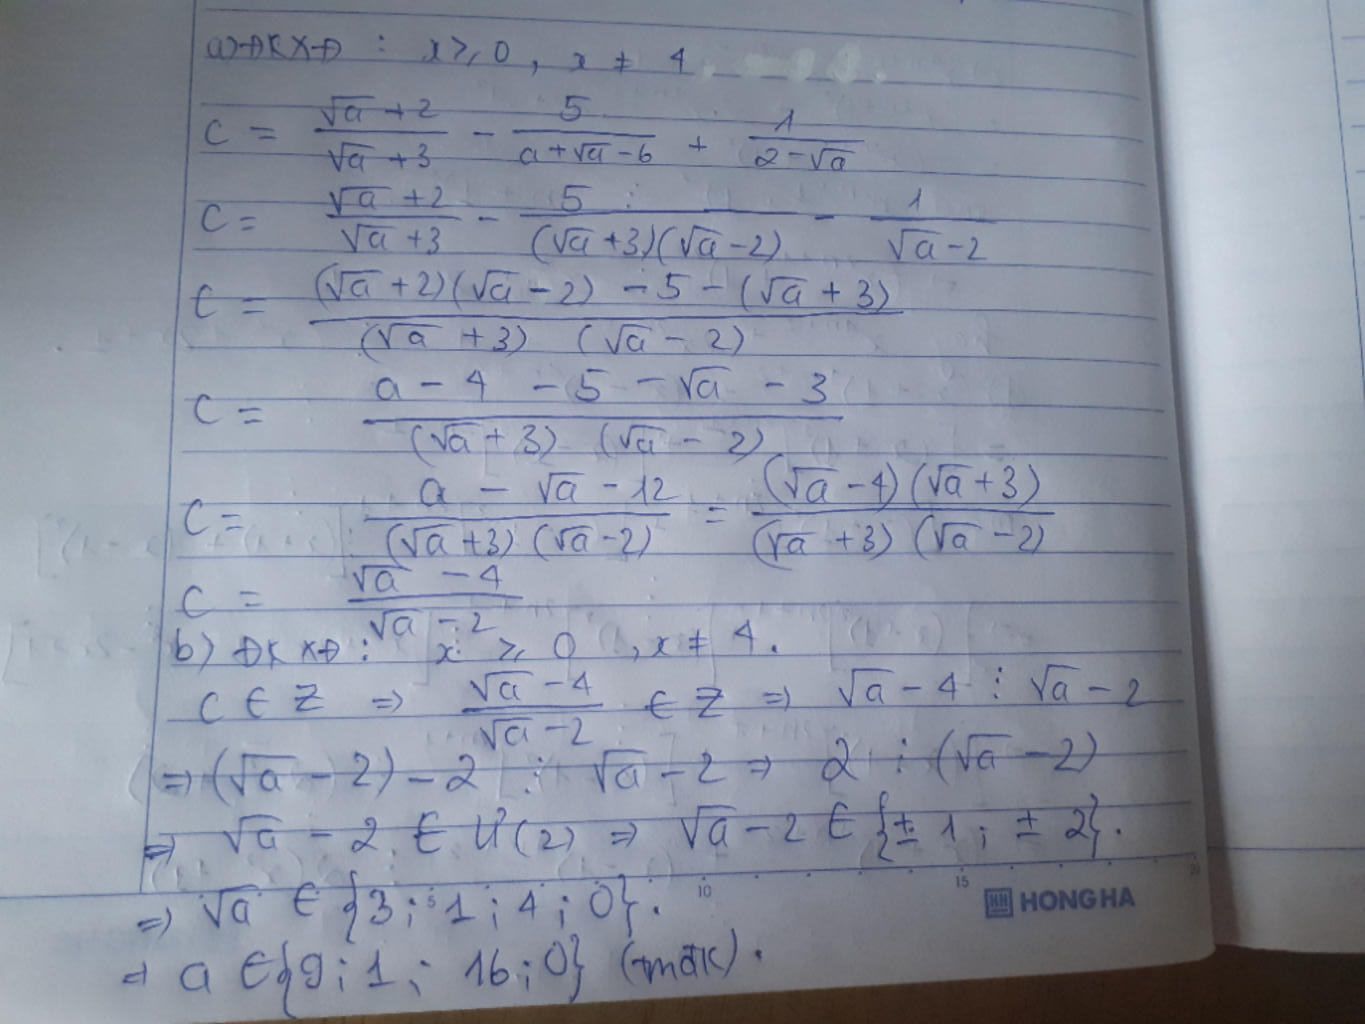 a) ĐKXĐ : x ⩾ 0, x ≠ 4.
C = (√a + 2)/(√a + 3) - 5/(a + √a - 6) + 1/(2 - √a)
C = (√a + 2)/(√a + 3) - 5/((√a + 3)(√a - 2)) - 1/(√a - 2)
C = ((√a + 2)(√a - 2) - 5 - (√a + 3))/((√a + 3)(√a - 2))
C = (a - 4 - 5 - √a - 3)/((√a + 3)(√a - 2))
C = (a - √a - 12)/((√a + 3)(√a - 2)) = ((√a - 4)(√a + 3))/((√a + 3)(√a - 2))
C = (√a - 4)/(√a - 2)
b) ĐKXĐ : x ⩾ 0, x ≠ 4.
C ∈ Z ⇒ (√a - 4)/(√a - 2) ∈ Z ⇒ √a - 4 ⋮ √a - 2
⇒ (√a - 2) - 2 ⋮ √a - 2 ⇒ 2 ⋮ (√a - 2)
⇒ √a - 2 ∈ Ư(2) ⇒ √a - 2 ∈ {± 1 ; ± 2}.
⇒ √a ∈ {3 ; 1 ; 4 ; 0}.
⇒ a ∈ {9 ; 1 ; 16 ; 0} (tmđk).
5 10 15 20
HH HONG HA